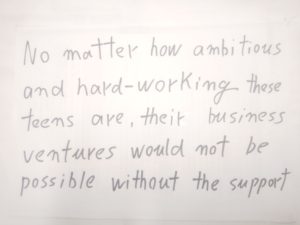 No matter how ambitious
and hard-working these
teens are, their business
ventures would not be
possible without the support